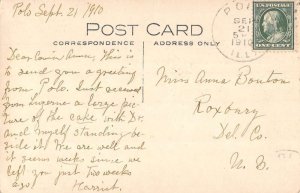 Polo Sept. 21/1910
POST CARD
CORRESPONDENCE
ADDRESS ONLY
POLO
SEP
21
1910
ILL.
U.S. POSTAGE
ONE CENT
Dear Cousin Anna, This is
to send you a greeting
from Polo. Just received
from a large pic-
ture of the cake with Dr.
and myself standing be-
side it! We are well and
it seems weeks since we
left you just two weeks
ago Harriet.
Miss Anna Bouton
Roxbury
Del. Co.
N. Y.